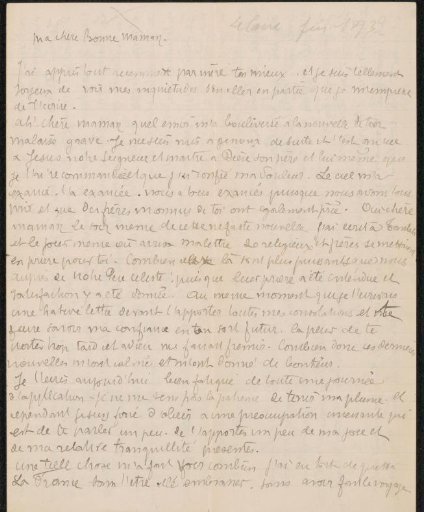 Le Caire fin 1893
ma chère Bonne maman,
J'ai appris tout récemment par mère ton mieux. et je suis tellement
joyeux de voir mes inquiétudes en partie que je m'empresse
de t'écrire.
ah! chère maman quel émoi m'a bouleversé à la nouvelle de ton
malaise grave. Je me suis mis à genoux de suite et c'est
à Jésus notre Seigneur et maître à Dieu son père et lui même que
je t'ai recommandée que j'ai confié ma douleur. Le ciel m'a
exaucé. t'a exaucée. nous a tous exaucés puisque nous avons tous
prié et que des frères inconnus de toi ont également prié. Oui chère
maman le soir même de cette néfaste nouvelle j'ai écrit à
et le jour même où arriva ma lettre 20 religieux et frères se mettaient
en prière pour toi. Combien là sont plus puissants que nous
auprès de notre Père céleste, puisque leur prière a été entendue et
satisfaction y a été donnée. Au même moment que je t'écrivais
une hative lettre devant t'apporter toutes mes consolations et
ma confiance en ton futur. la peur de te
trop tard Combien donc ces dernières
nouvelles m'ont calmé et m'ont donné de bonheur.
Je t'écris aujourd'hui bien fatigué de toute une journée
d'application. je ne me sens pas la patience de tenir ma plume. et
cependant je suis forcé d'obéir à une préoccupation incessante qui
est de te parler un peu. de t'apporter un peu de ma joie et
de ma relative tranquillité présentes.
une telle chose m'a fait voir combien j'ai eu tort de quitter
La France sans t'être allé embrasser, sans avoir fait le voyage